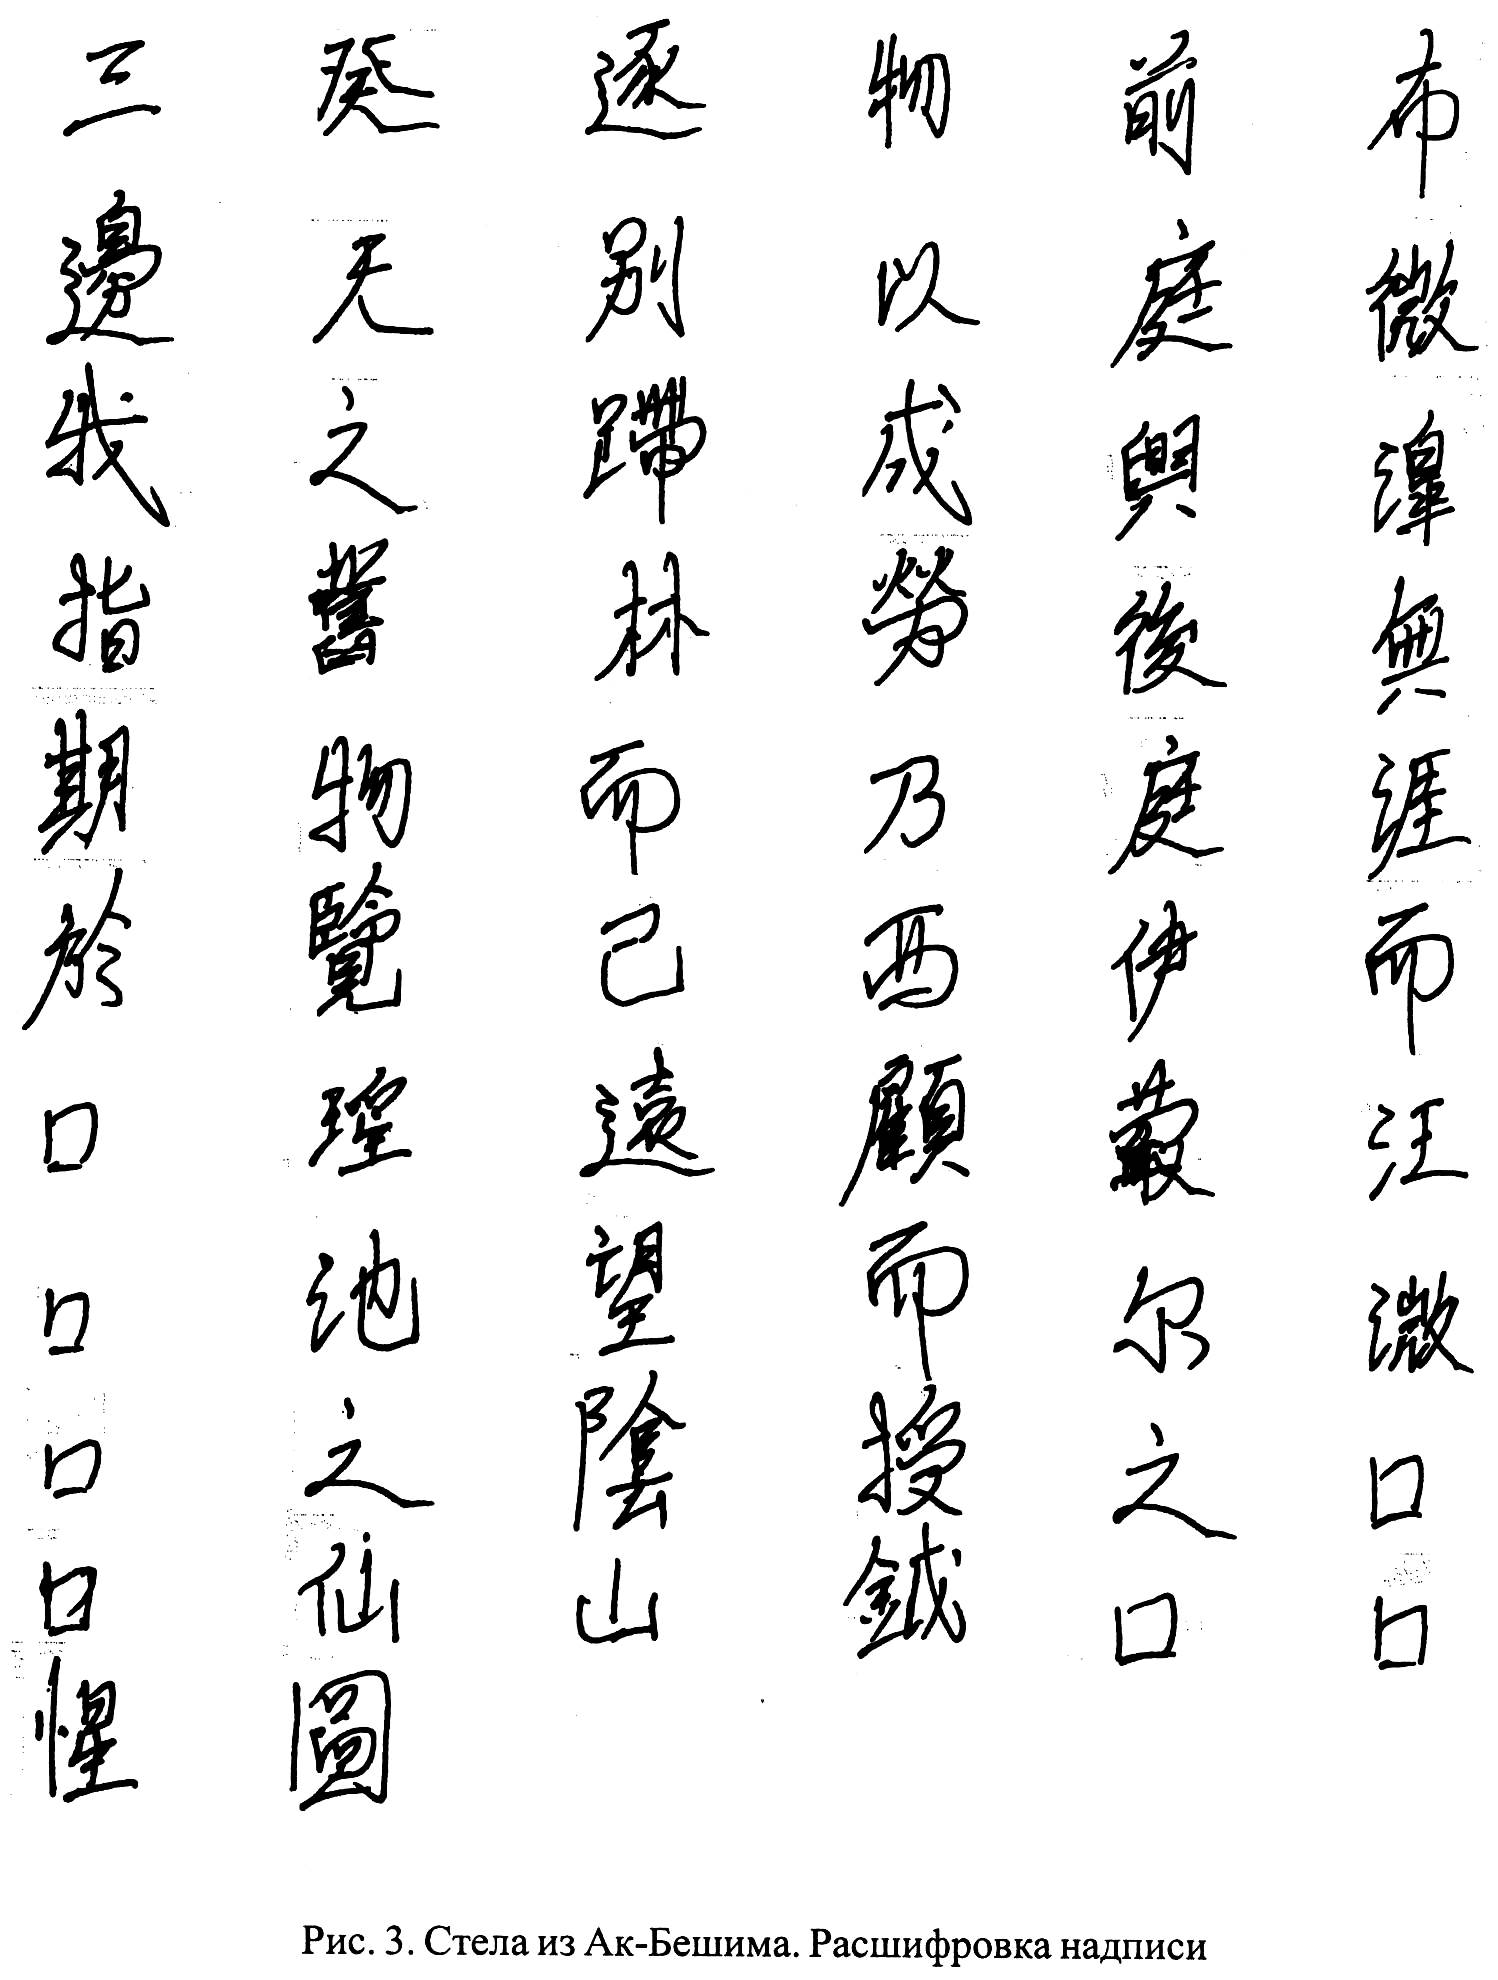 布微無涯而汪溦□□
前庭與後庭伊尔之□
物以成勞乃西顧而授鉞
逐别蹛林而己遠望陰山
癸无之舊物覽瑶池之仙圖
三邊我指期於□□□□惺
Рис. 3. Стела из Ак-Бешима. Расшифровка надписи